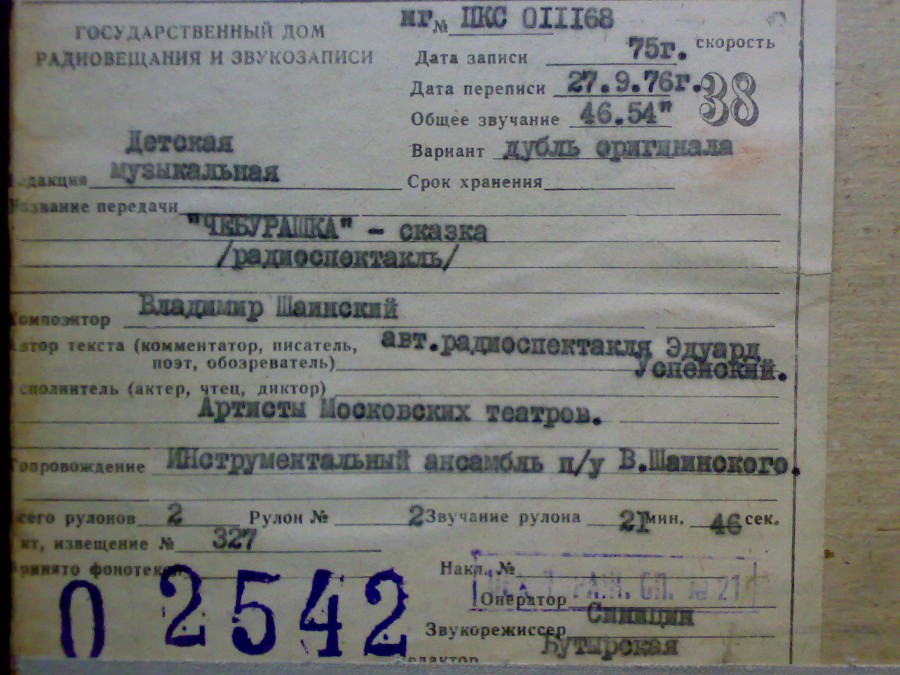 ГОСУДАРСТВЕННЫЙ ДОМ
РАДИОВЕЩАНИЯ И ЗВУКОЗАПИСИ
мг № ПКС 0III68
Дата записи 75г. скорость
Дата переписи 27.9.76г. 38
Общее звучание 46.54"
Вариант дубль оригинала
Срок хранения
Детская
едакция музыкальная
Название передачи
"ЧЕБУРАШКА" - сказка
/радиоспектакль/
Композитор Владимир Шаинский
Автор текста (комментатор, писатель,
поэт, обозреватель) авт.радиоспектакля Эдуард
Успенский.
сполнитель (актер, чтец, диктор)
Артисты Московских театров.
Сопровождение ИНструментальный ансамбль п/у В.Шаинского.
сего рулонов 2 Рулон № 2 Звучание рулона 21 мин. 46 сек.
кт, извещение № 327
ринято фонотекой
Накл. №
0 2542
Оператор Синицин
Звукорежиссер Бутырская
едактор